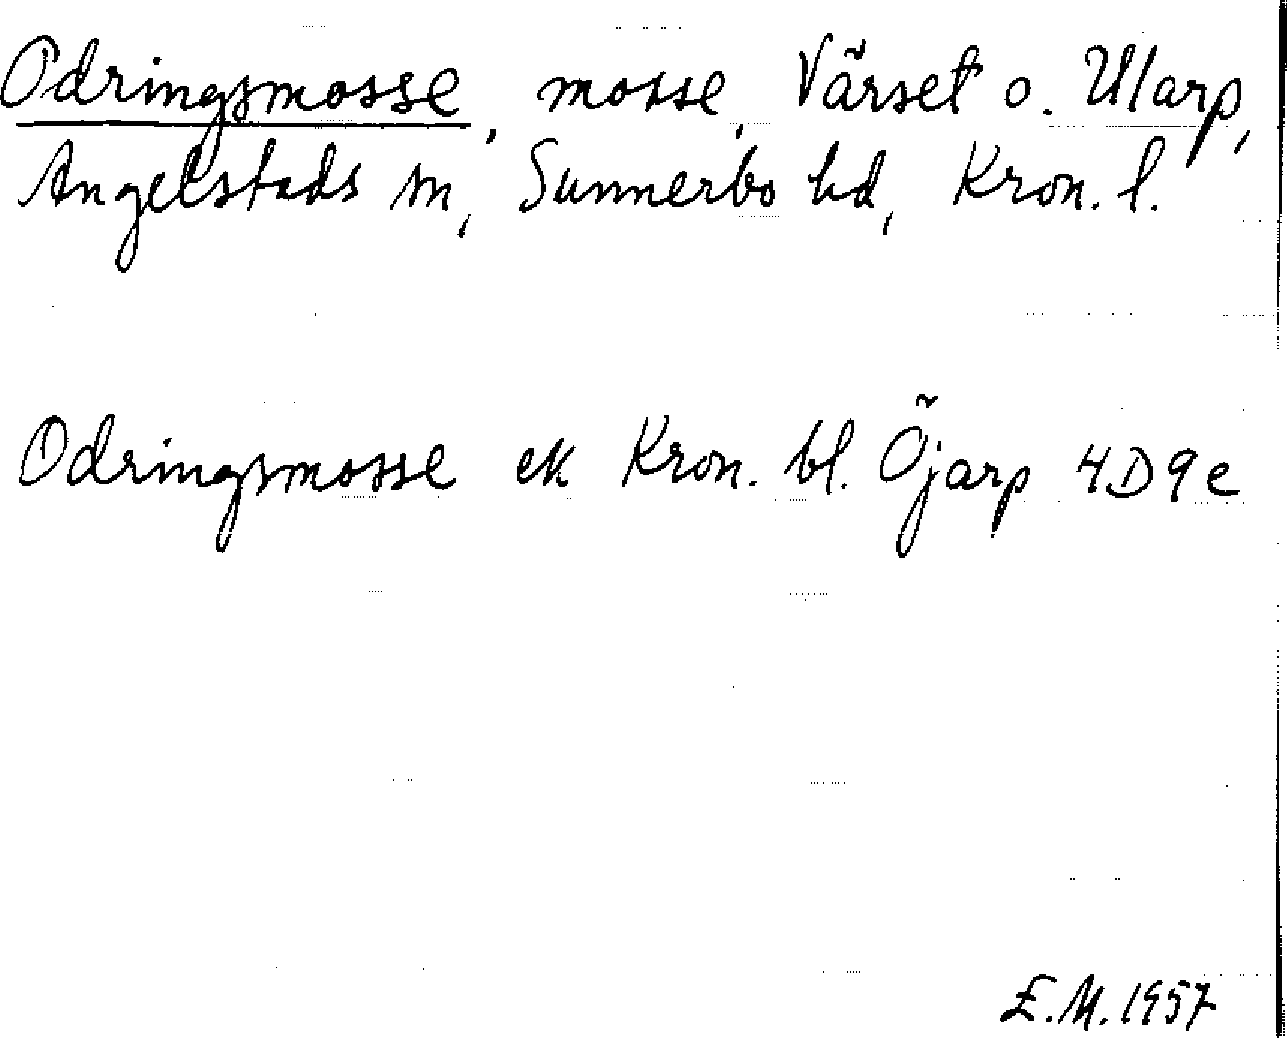 Odringsmosse, mosse, Värset o. Ularp,
Angelstads sn, Sunnerbo hd, Kron. l.
Odringsmosse ek Kron. bl. Öjarp 4D9e
E.M. 1957